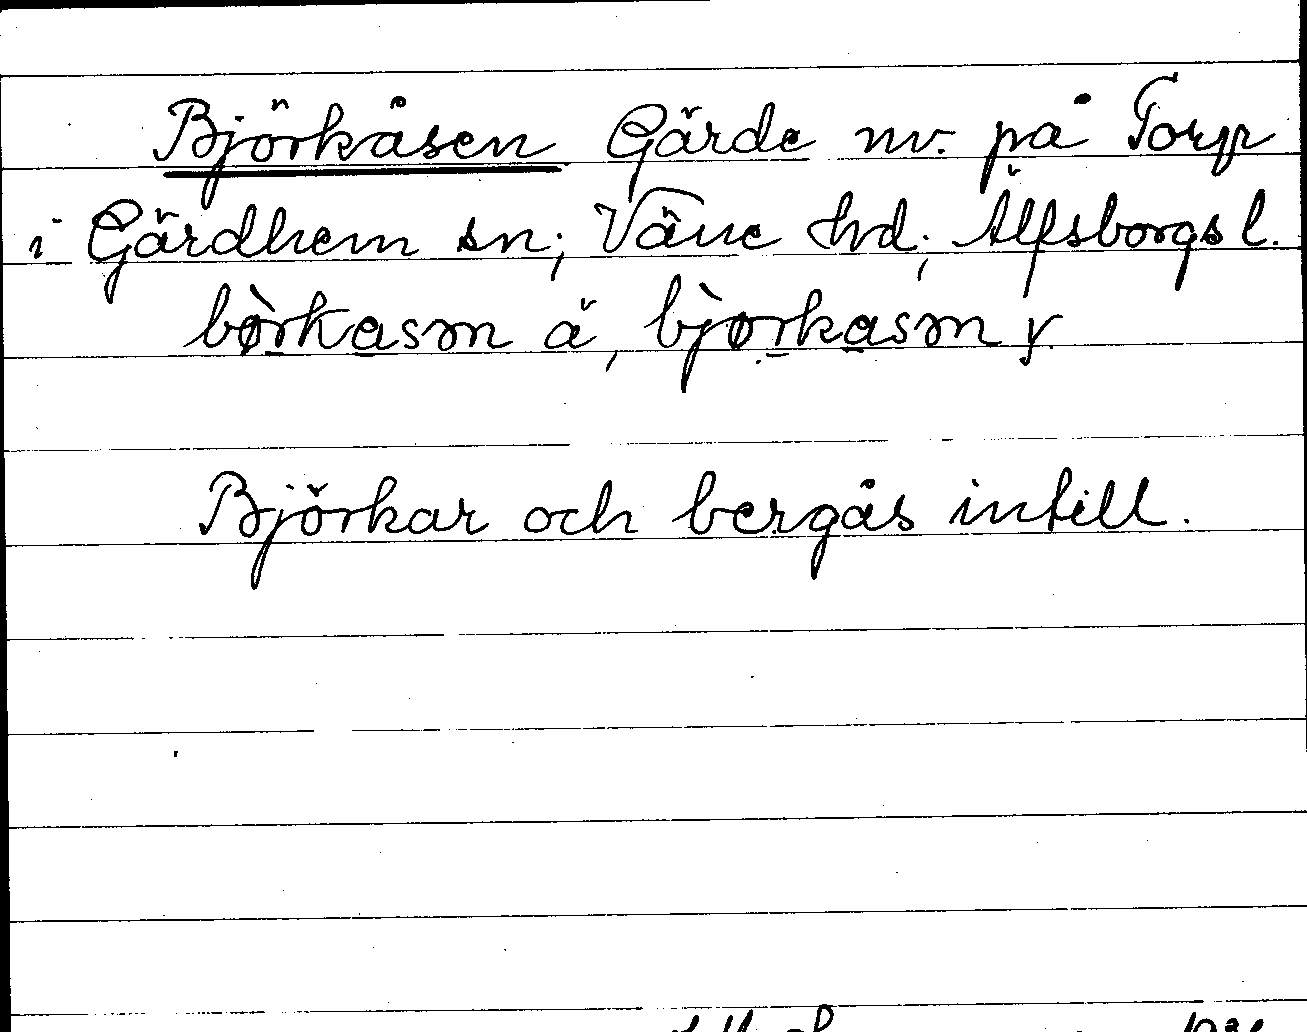 Björkåsen Gärde nv. på Torp
i Gärdhem sn; Väne hd; Älfsborgs l.
bø̀rkasm ä, bjø̀rkasm y.
Björkar och bergås intill.